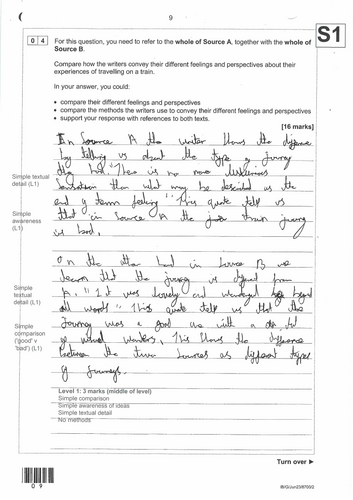 9
S1
0 4 For this question, you need to refer to the whole of Source A, together with the whole of
Source B.
Compare how the writers convey their different feelings and perspectives about their
experiences of travelling on a train.
In your answer, you could:
• compare their different feelings and perspectives
• compare the methods the writers use to convey their different feelings and perspectives
• support your response with references to both texts.
[16 marks]
In Source A the writer shows the
by telling us about the type of journey
they had "There is no more
sensation than what may be described as the
Simple textual
detail (L1)
end of term feeling" This quote tells us
Simple
awareness
(L1)
that in source A the train journey
is hard.
On the other hand in source B we
learn that the journey is different from
Simple
textual
detail (L1)
A. "It was lovely and wonderful beyond
all words" This quote tell us that the
Simple
comparison
('good' v
'bad') (L1)
Journey was a good one with a lot
of, This shows the
between the two sources as different types
of journeys.
Level 1: 3 marks (middle of level)
Simple comparison
Simple awareness of ideas
Simple textual detail
No methods
Turn over ►
0 9
IB/G/Jun23/8700/2